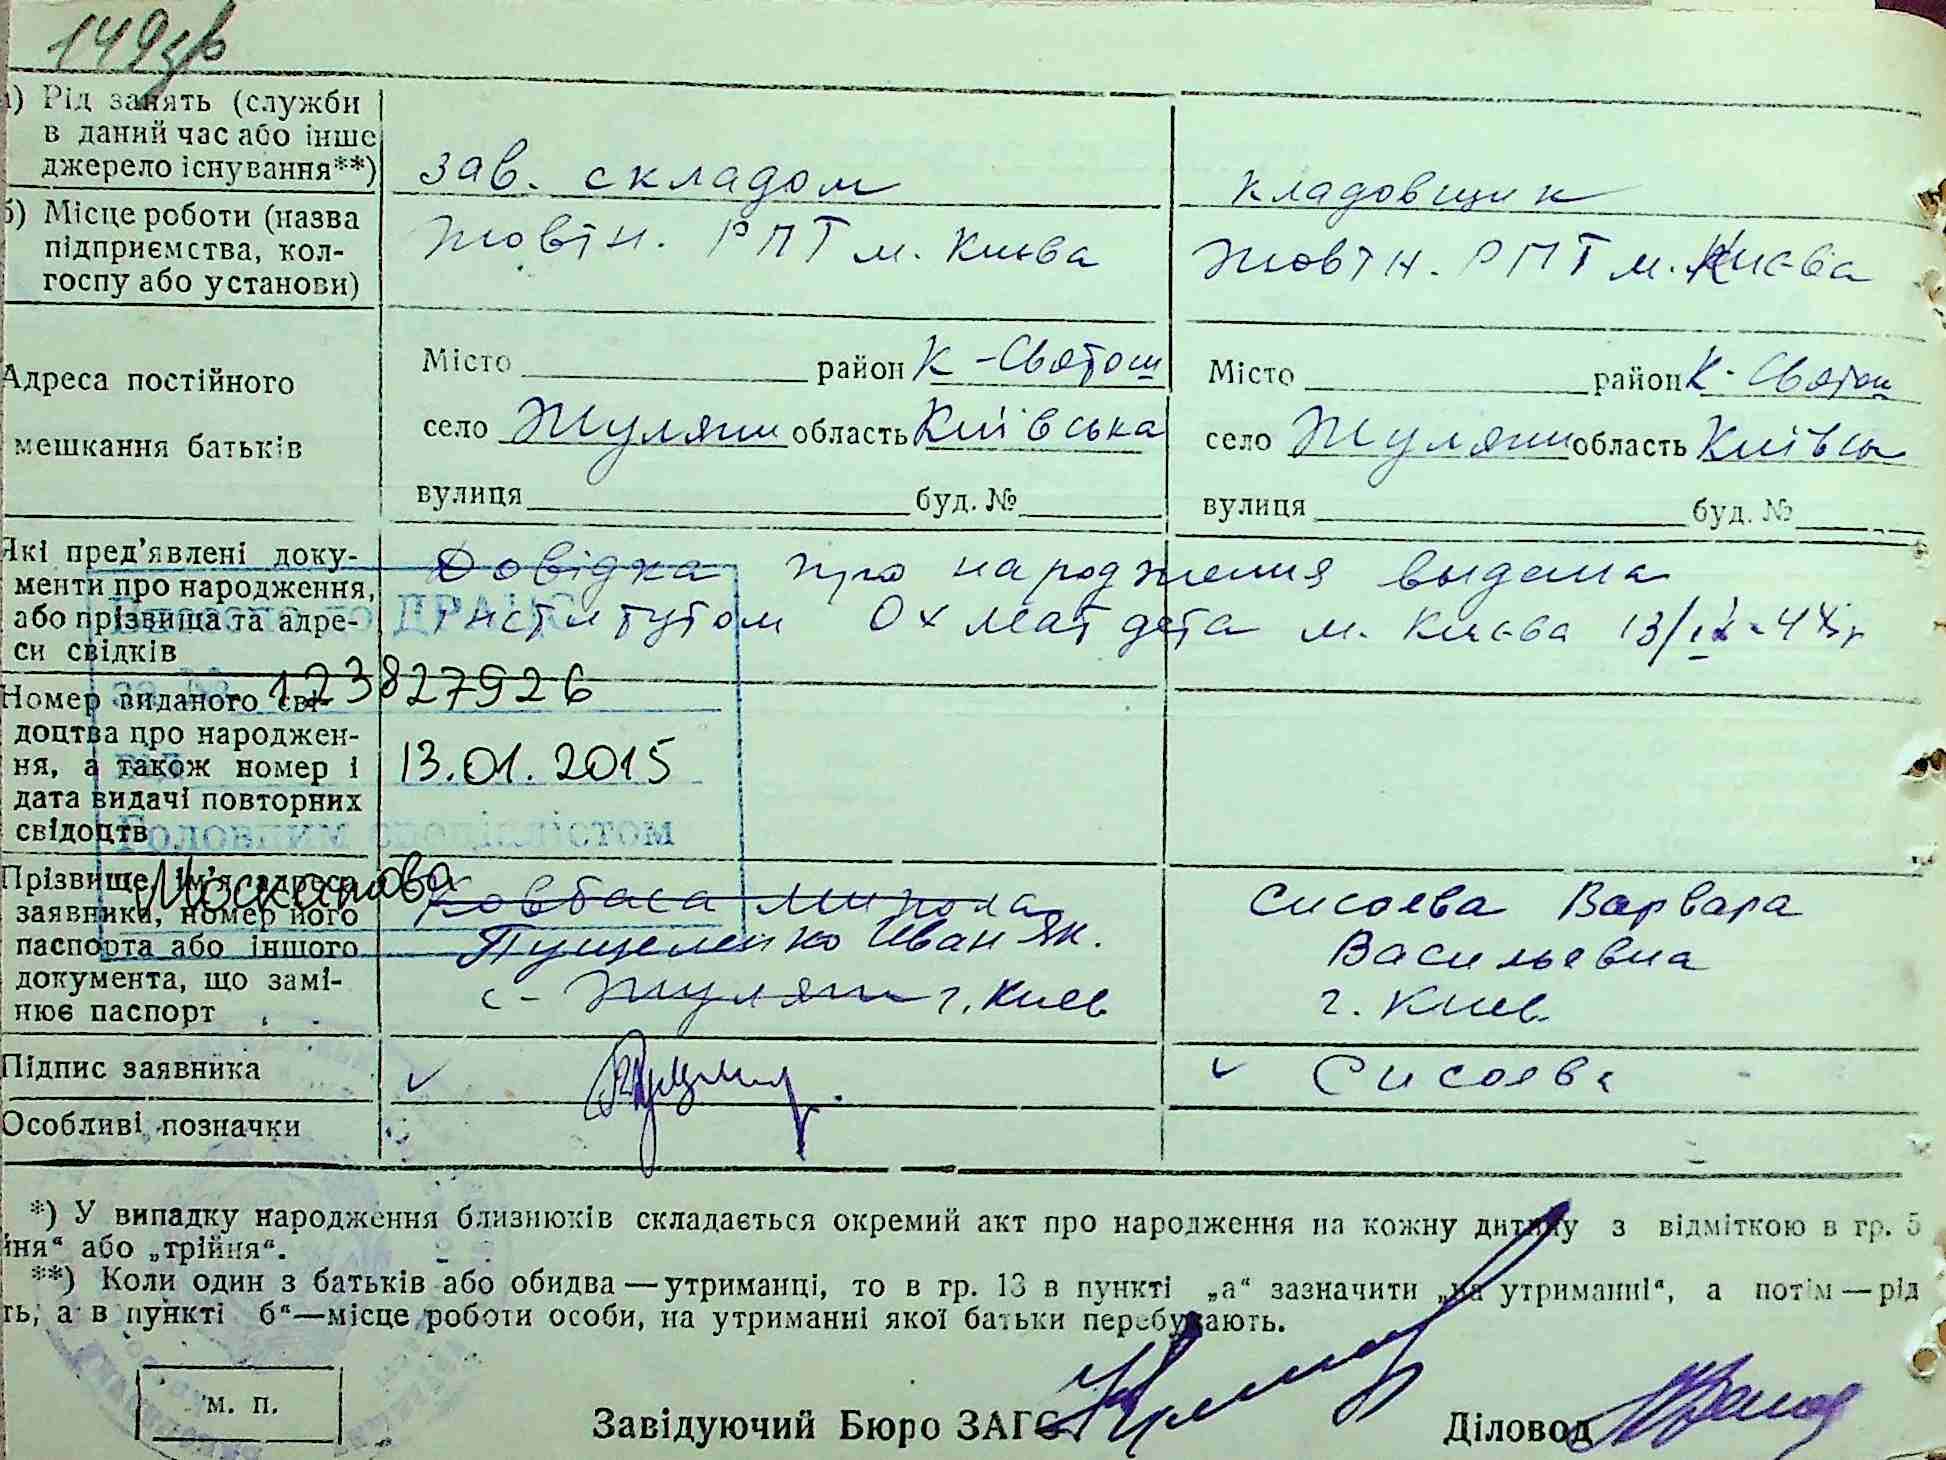 149зв
а) Рід занять (служби
в даний час або інше
джерело існування**)
зав. складом
кладовщик
б) Місце роботи (назва
підприємства, кол-
госпу або установи)
Жовтн. РПТ м. Києва
Жовтн. РПТ м. Києва
Адреса постійного
мешкання батьків
Місто район К-Святош
село Жуляни область Київська
вулиця буд. №
Місто район К-Святош
село Жуляни область Київськ
вулиця буд. №
Які пред'явлені доку-
менти про народження,
або прізвища та адре-
си свідків
Довідка про народження выдана
інститутом Охматдета м. Києва 13/IX-44г
Номер виданого сві-
доцтва про народжен-
ня, а також номер і
дата видачі повторних
свідоцтв
ДРАЦС
123827926
13.01.2015
Головним спеціалістом
Прізвище, ім'я, адреса
заявника, номер його
паспорта або іншого
документа, що замі-
нює паспорт
Ковбаса
Пущеленко Иван Як.
с- Жуляни г. Киев
Сисоева Варвара
Васильевна
г. Киев
Підпис заявника
Сисоева
Особливі позначки
*) У випадку народження близнюків складається окремий акт про народження на кожну дитину з відміткою в гр. 5
йня“ або „трійня“.
**) Коли один з батьків або обидва — утриманці, то в гр. 13 в пункті „а“ зазначити „на утриманні“, а потім — рід
ть, а в пункті б“—місце роботи особи, на утриманні якої батьки перебувають.
м. п.
Завідуючий Бюро ЗАГС
Діловод